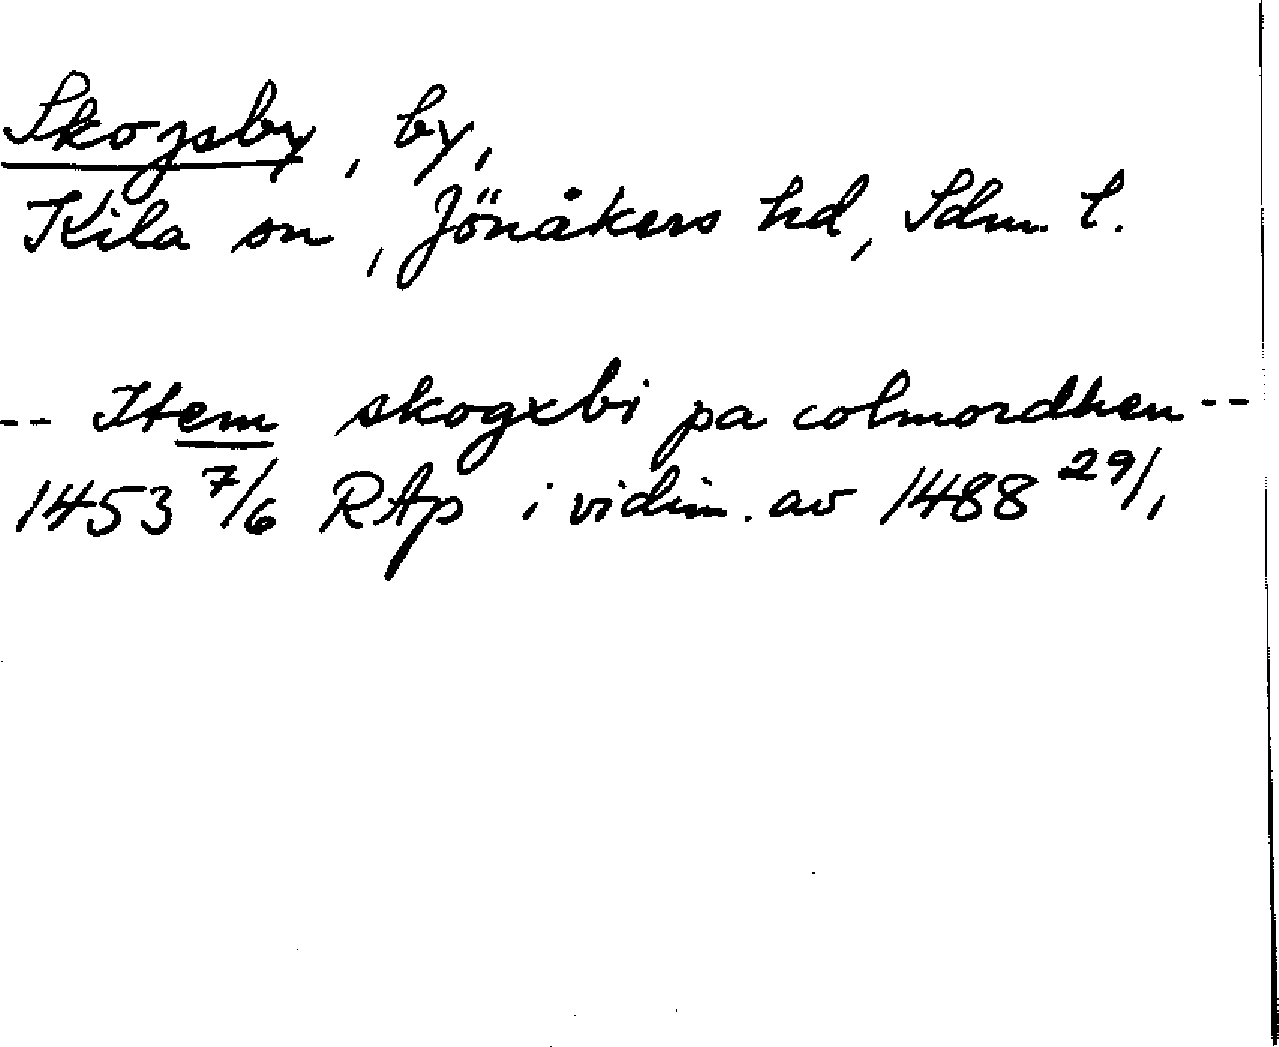 Skogsby, by,
Kila sn, Jönåkers hd, Sdm. l.
-- Item skogxbi pa colmordhen --
1453 7/6 RAp i vidim. av 1488 29/1